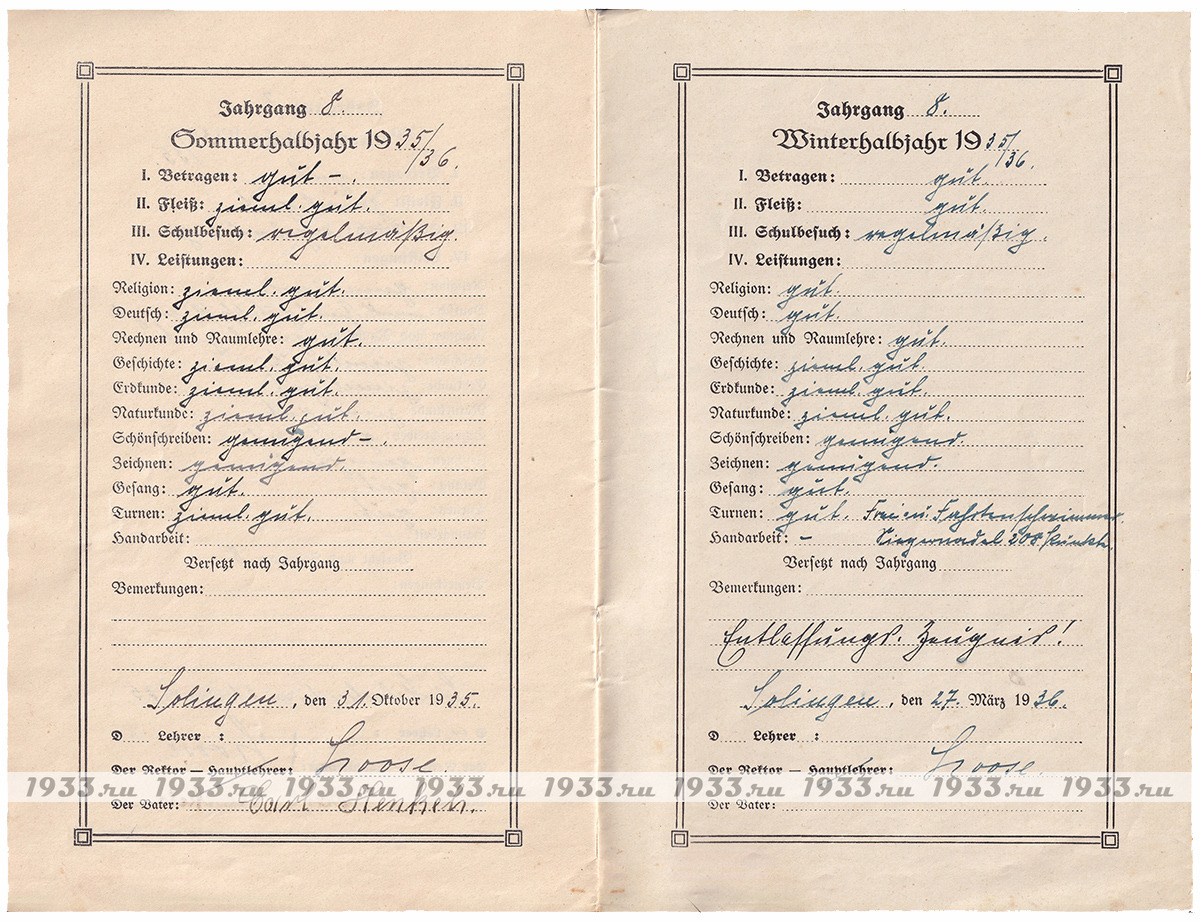 Jahrgang 8.
Sommerhalbjahr 1935/36.
I. Betragen: gut – .
II. Fleiß: zieml. gut.
III. Schulbesuch: regelmäßig.
IV. Leistungen:
Religion: zieml. gut.
Deutsch: zieml. gut.
Rechnen und Raumlehre: gut.
Geschichte: zieml. gut.
Erdkunde: zieml. gut.
Naturkunde: zieml. gut.
Schönschreiben: genügend – .
Zeichnen: genügend.
Gesang: gut.
Turnen: zieml. gut.
Handarbeit:
Versetzt nach Jahrgang
Bemerkungen:
Solingen, den 31. Oktober 1935.
D Lehrer :
Der Rektor – Hauptlehrer: Loose.
Der Vater: Carl
Jahrgang 8.
Winterhalbjahr 1935/36.
I. Betragen: gut.
II. Fleiß: gut.
III. Schulbesuch: regelmäßig.
IV. Leistungen:
Religion: gut.
Deutsch: gut.
Rechnen und Raumlehre: gut.
Geschichte: zieml. gut.
Erdkunde: zieml. gut.
Naturkunde: zieml. gut.
Schönschreiben: genügend.
Zeichnen: genügend.
Gesang: gut.
Turnen: gut. Frei- u. Fahrtenschwimmer.
Handarbeit: – Siegernadel 208 Punkte.
Versetzt nach Jahrgang
Bemerkungen:
Entlassungs-Zeugnis!
Solingen, den 27. März 1936.
D Lehrer :
Der Rektor – Hauptlehrer: Loose.
Der Vater:
1933.ru 1933.ru 1933.ru 1933.ru 1933.ru 1933.ru 1933.ru 1933.ru 1933.ru